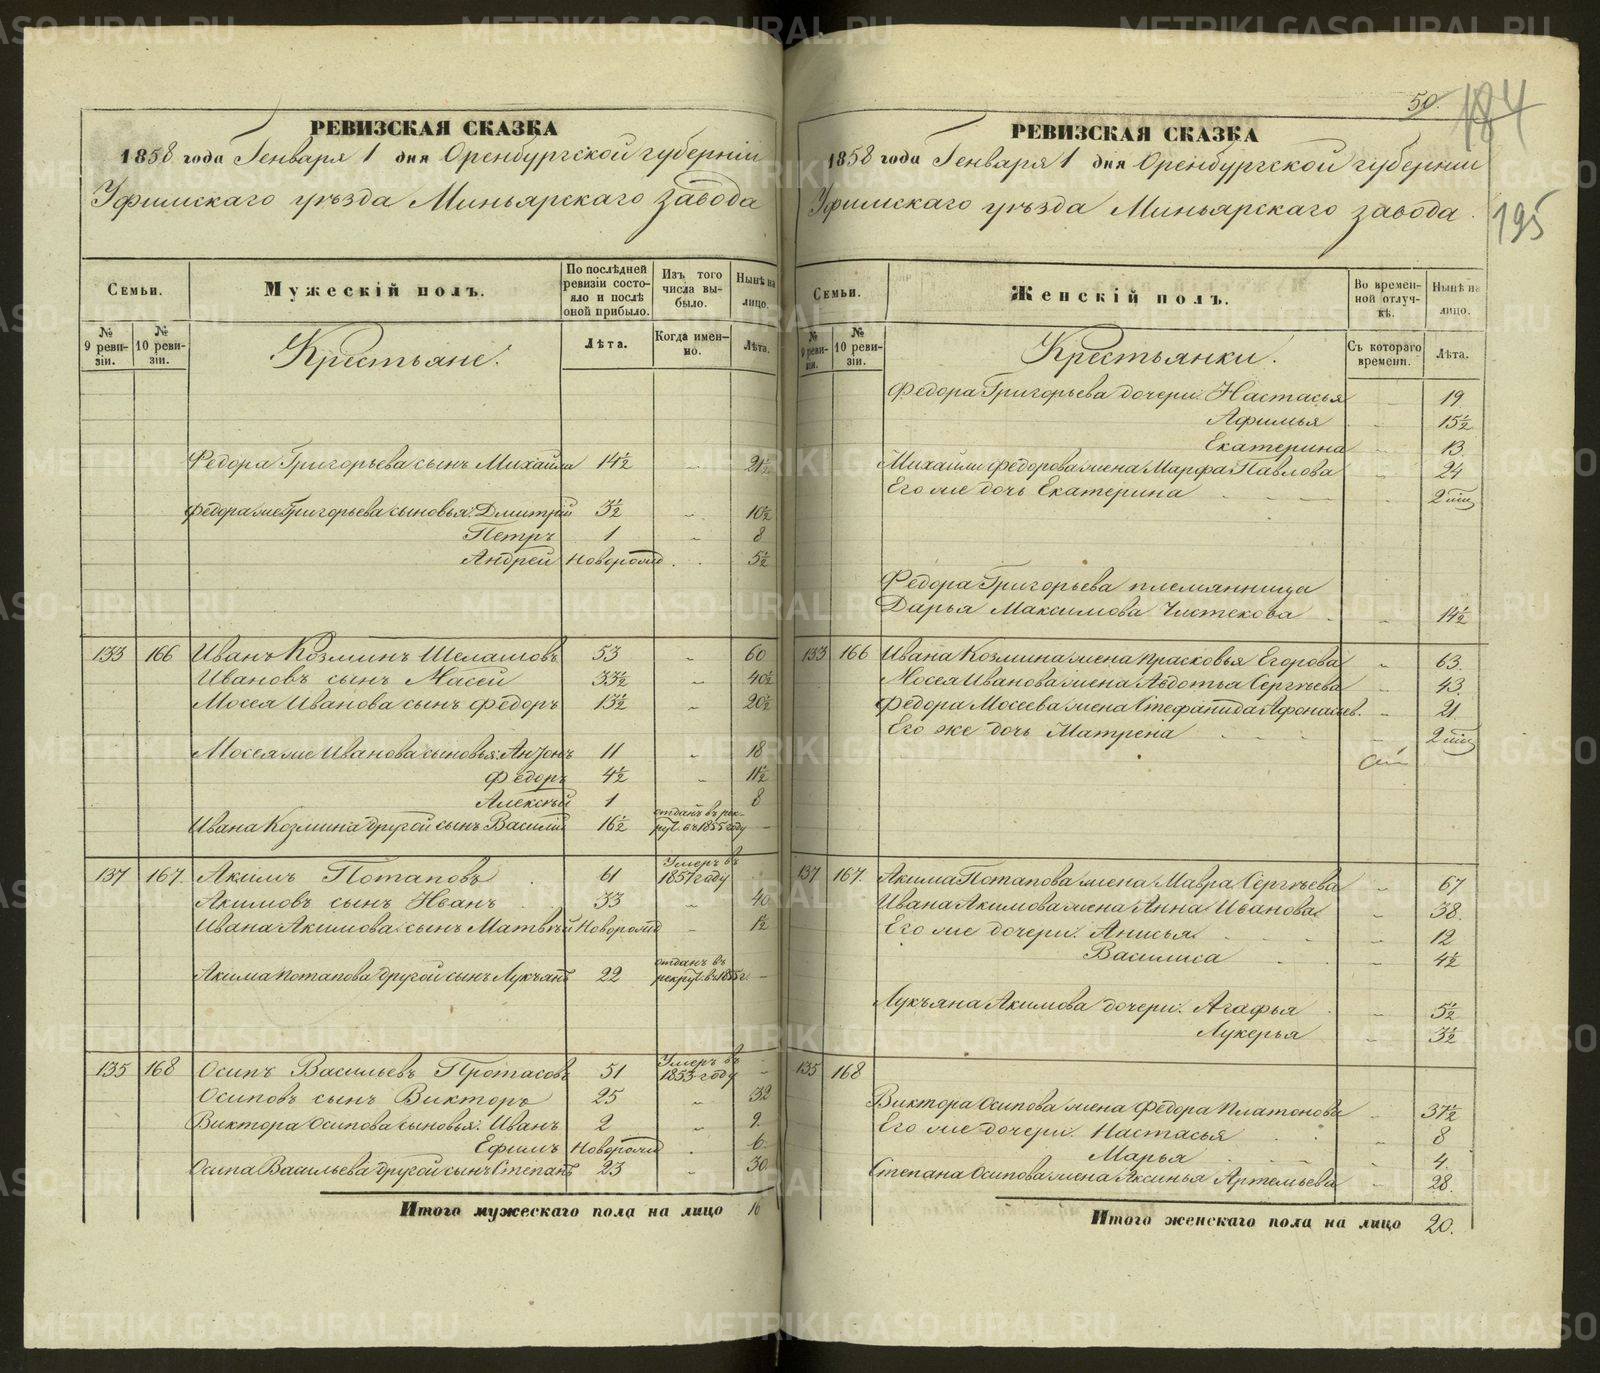 METRIKI.GASO-URAL.RU
50.
184
195
РЕВИЗСКАЯ СКАЗКА
1858 года Генваря 1 дня Оренбургской губерніи
Уфимскаго уѣзда Миньярскаго завода
Семьи.
Мужескій полъ.
По послѣдней ревизіи состояло и послѣ оной прибыло.
Изъ того числа выбыло.
Нынѣ на лицо.
№ 9 ревизіи.
№ 10 ревизіи.
Крестьяне.
Лѣта.
Когда именно.
Лѣта.
Федора Григорьева сынъ Михайла 14½ „ 21½
Федора же Григорьева сыновья: Дмитрій 3½ „ 10½
Петръ 1 „ 8
Андрей новорожд . . 5½
133 166 Иванъ Козминъ Шелашовъ 53 „ 60
Ивановъ сынъ Масей 33½ „ 40½
Мосея Иванова сынъ Федоръ 13½ „ 20½
Мосея же Иванова сыновья: Антонъ 11 „ 18
Федоръ 4½ „ 11½
Алексѣй 1 8
Ивана Козмина другой сынъ Василій 16½ отданъ въ рекрут. въ 1855 году —
137 167. Акимъ Потаповъ 61 Умеръ въ 1857 году
Акимовъ сынъ Иванъ 33 „ 40
Ивана Акимова сынъ Матвѣй Новорожд „ 1½
Акима Потапова другой сынъ Лукъянъ 22 отданъ въ рекрут. въ 1855 г. —
135 168 Осипъ Васильевъ Протасовъ 51 Умеръ въ 1853 году —
Осиповъ сынъ Викторъ 25 „ 32
Виктора Осипова сыновья: Иванъ 2 „ 9.
Ефимъ Новорожд . 6
Осипа Васильева другой сынъ Степанъ 23 „ 30
Итого мужескаго пола на лицо 16
РЕВИЗСКАЯ СКАЗКА
1858 года Генваря 1 дня Оренбургской губерніи
Уфимскаго уѣзда Миньярскаго завода.
Семьи.
Женскій полъ.
Во временной отлучкѣ.
Нынѣ на лицо.
№ 9 ревизіи.
№ 10 ревизіи.
Крестьянки.
Съ котораго времени.
Лѣта.
Федора Григорьева дочери: Настасья „ 19
Афимья 15½
Екатерина 13
Михайлы Федорова жена Марфа Павлова „ 24
Его же дочь Екатерина 2 мѣс
Федора Григорьева племянница
Дарья Максимова 14½
133 166 Ивана Козмина жена Прасковья Егорова „ 63.
Мосея Иванова жена Авдотья Сергѣева „ 43
Федора Мосеева жена Стефанида Афонасьев. „ 21
Его же дочь Матрена 2 мѣс
137 167. Акима Потапова жена Мавра Сергѣева „ 67
Ивана Акимова жена Анна Иванова „ 38.
Его же дочери: Анисья 12
Василиса 4½
Лукъяна Акимова дочери: Агафья 5½
Лукерья 3½
135 168
Виктора Осипова жена Федора Платонова „ 37½
Его же дочери: Настасья 8
Марья 4.
Степана Осипова жена Аксинья Артемьева „ 28
Итого женскаго пола на лицо 20.